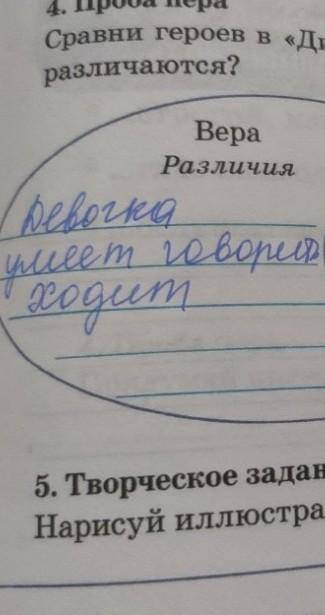 4. Проба пера
Сравни героев в «Ди
различаются?
Вера
Различия
Девочка
умеет говорить
ходит
5. Творческое задан
Нарисуй иллюстра